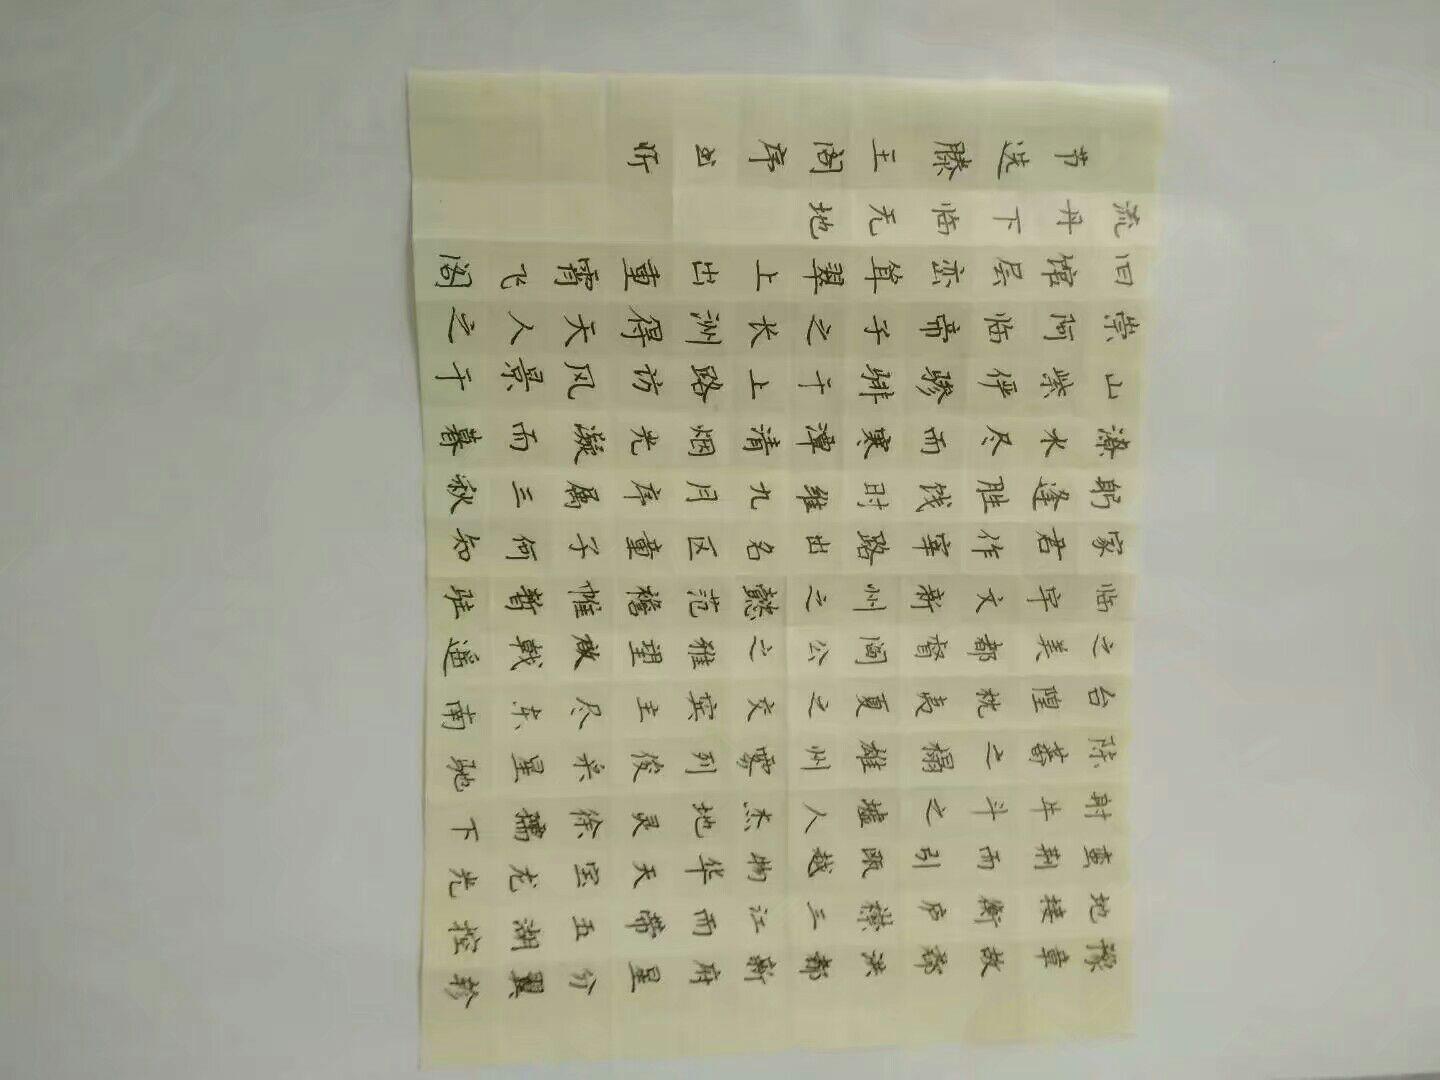 豫章故郡洪都新府星分翼轸
地接衡庐襟三江而带五湖控
蛮荆而引瓯越物华天宝龙光
射牛斗之墟人杰地灵徐孺下
陈蕃之榻雄州雾列俊采星驰
台隍枕夷夏之交宾主尽东南
之美都督阎公之雅望啟戟遥
临宇文新州之懿范襜帷暂驻
家君作宰路出名区童子何知
躬逢胜饯时维九月序属三秋
潦水尽而寒潭清烟光凝而暮
山紫俨骖騑于上路访风景于
崇阿临帝子之长洲得天人之
旧馆层峦耸翠上出重霄飞阁
流丹下临无地
节选滕王阁序书昕